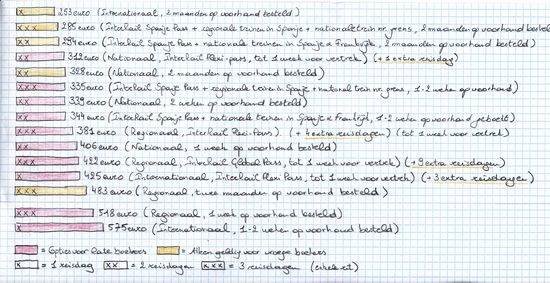 x 253 euro (Internationaal, 2 maanden op voorhand besteld)
xxx 285 euro (Interrail Spanje Pass + regionale treinen in Spanje + nationale trein nr. grens, 2 maanden op voorhand besteld
xx 294 euro (Interrail Spanje Pass + nationale treinen in Spanje & Frankrijk, 2 maanden op voorhand besteld)
xx 312 euro (Nationaal, Interrail Flexi-pass, tot 1 week voor vertrek) (+ 1 extra reisdag)
xx 328 euro (Nationaal, 2 maanden op voorhand besteld)
xxx 335 euro (Interrail Spanje Pass + regionale trein in Spanje + national trein nr. grens, 1-2 weken op voorhand)
xx 339 euro (Nationaal, 2 weken op voorhand besteld)
xx 344 euro (Interrail Spanje Pass + nationale treinen in Spanje & Frankrijk, 1-2 weken op voorhand geboekt)
xxx 381 euro (Regionaal, Interrail Flexi-Pass) (+ 4 extra reisdagen) (tot 1 week voor vertrek)
xx 406 euro (Nationaal, 1 week op voorhand besteld)
xxx 422 euro (Regionaal, Interrail Global Pass, tot 1 week voor vertrek) (+ 9 extra reisdagen)
x 425 euro (Internationaal, Interrail Flexi Pass, tot 1 week voor vertrek) (+ 3 extra reisdagen)
xxx 483 euro (Regionaal, twee maanden op voorhand besteld)
xxx 518 euro (Regionaal, 1 week op voorhand besteld)
x 575 euro (Internationaal, 1-2 weken op voorhand besteld)
= Opties voor late boekers = Alleen geldig voor vroege boekers
x = 1 reisdag xx = 2 reisdagen xxx = 3 reisdagen (enkele rit)